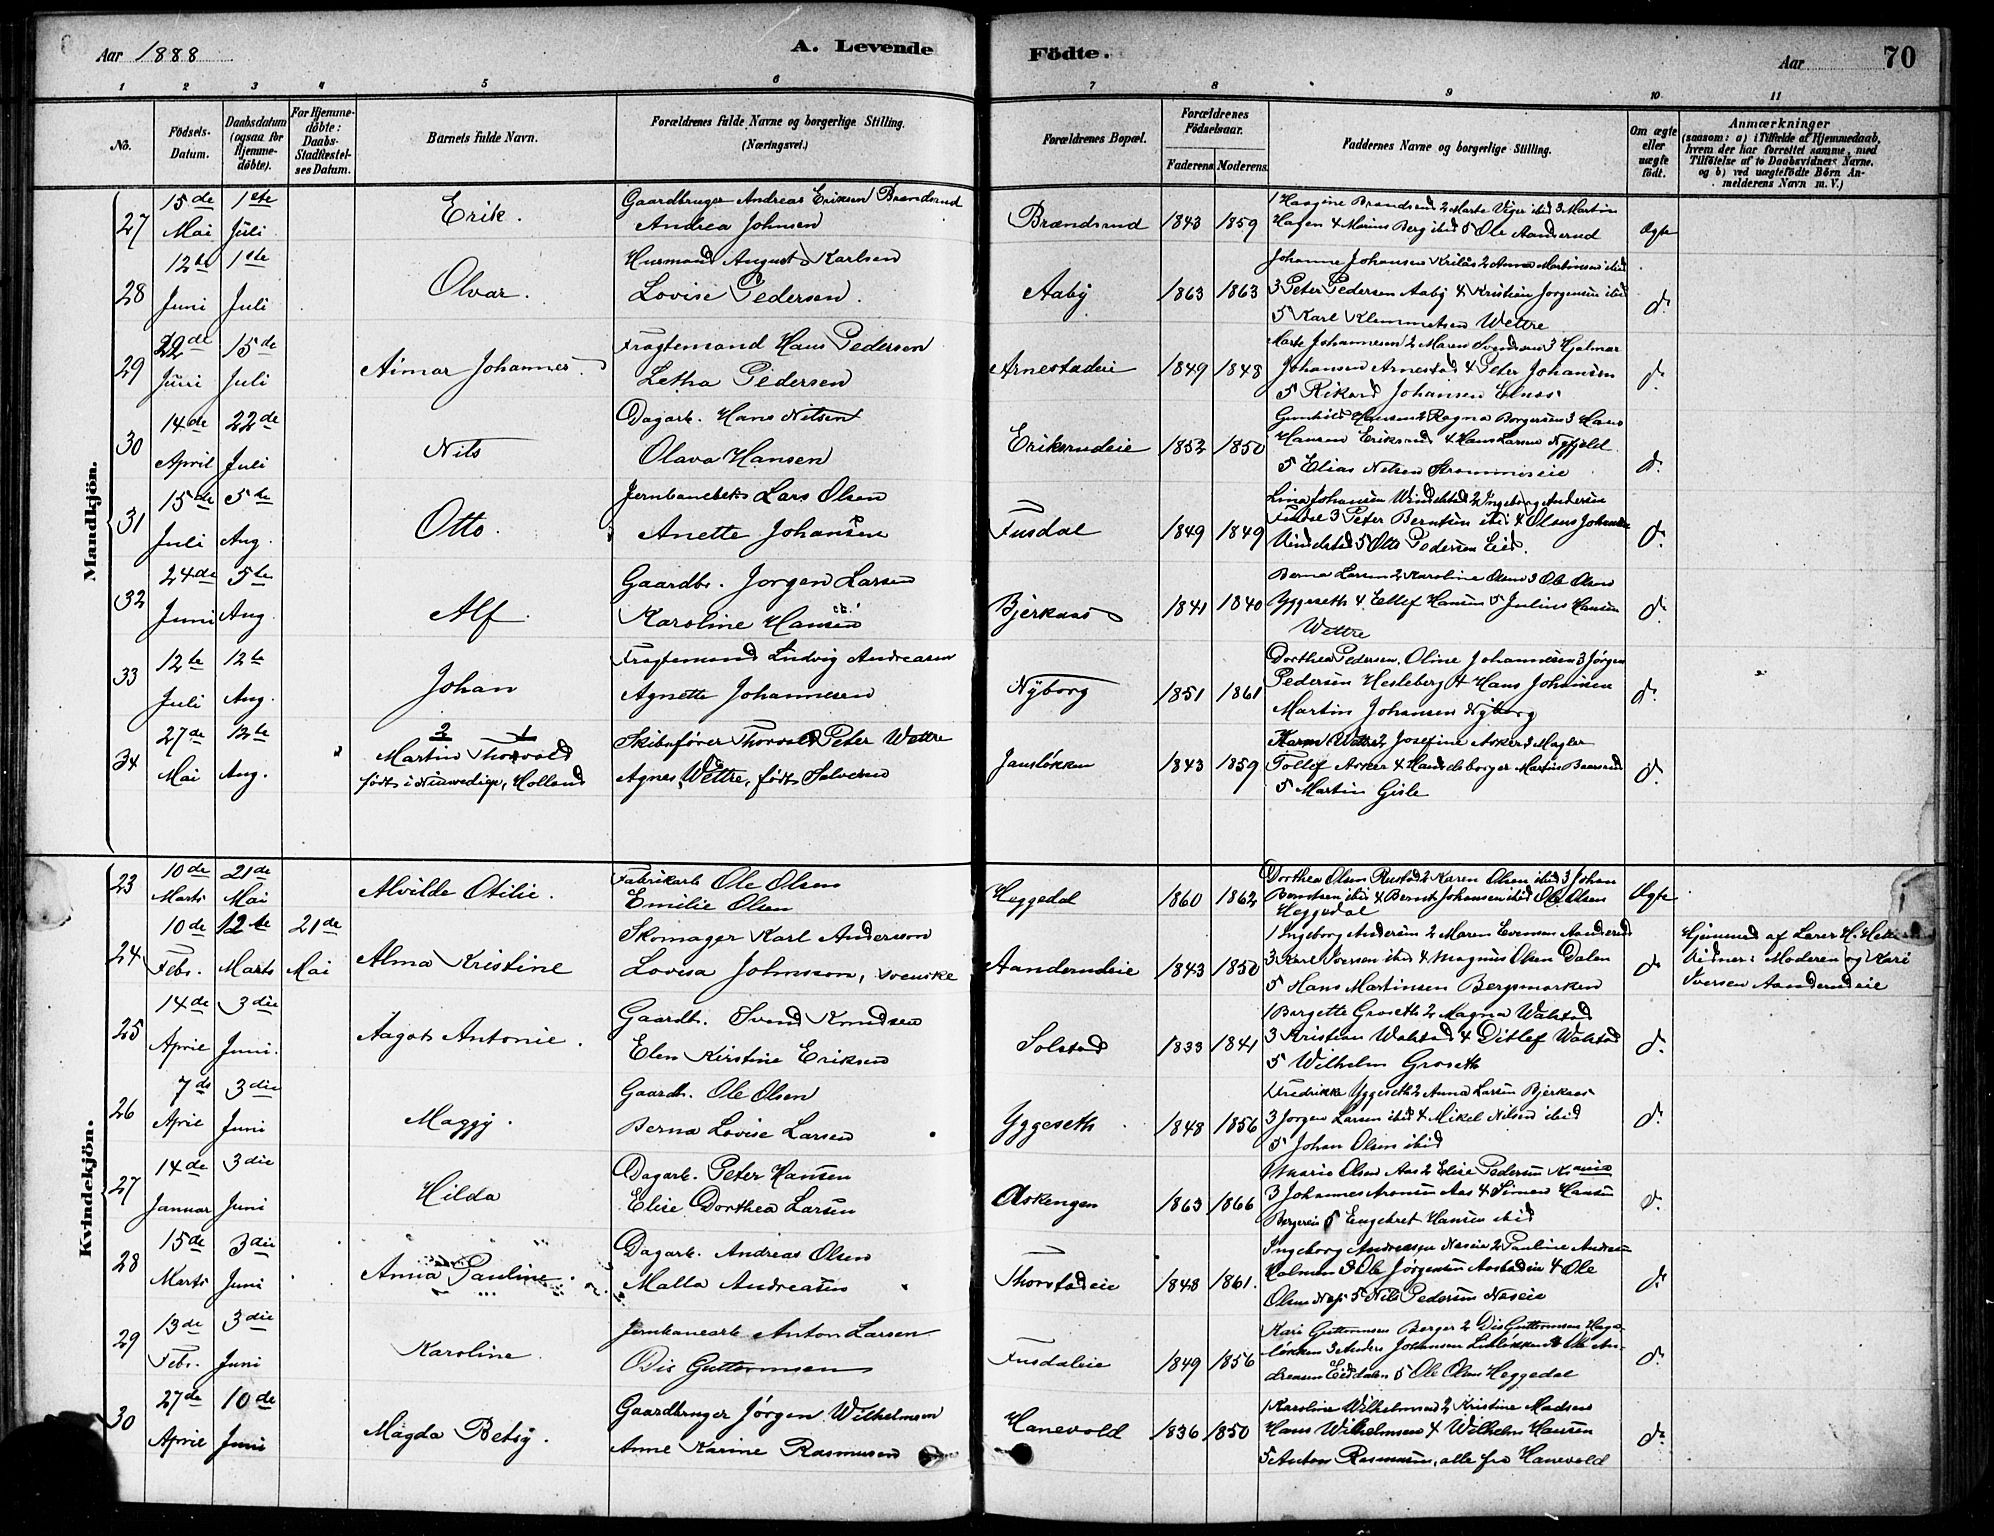 Aar 1888
A. Levende
Födte.
Aar
70
1 2 3 4 5 6 7 8 9 10 11
No.
Födsels-Datum.
Daabsdatum (ogsaa for Hjemme-döbte).
For Hjemme-döbte: Daabs-Stadfæstel-ses Datum.
Barnets fulde Navn.
Forældrenes fulde Navne og borgerlige Stilling. (Næringsvei.)
Forældrenes Bopæl.
Forældrenes Födselsaar.
Faderens. Moderens.
Faddernes Navne og borgerlige Stilling.
Om ægte eller uægte födt.
Anmærkninger
(saasom: a) i Tilfælde af Hjemmedaab, hvem der har forrettet samme, med Tilföielse af to Daabsvidners Navne, og b) ved uægtefödte Börn An-melderens Navn m. V.)
Mandkjön.
27 15de Mai 1ste Juli Erik. Gaardbruger Andreas Eriksen Brændsrud
Andrea Johnsen Brændsrud 1843 1859 1 Haagine Brændsrud 2 Marte Viger ibid 3 Martin
Hagen 4 Marius Berg ibid 5 Ole Aanderud Ægte
28 12te Juni 1ste Juli Olvar. Husmand August Karlsen
Lovise Pedersen. Aaby 1863 1863 Johanne Johansen 2 Anna Martinsen ibid
3 Peter Pedersen Aaby 4 Kristian Jorgensen ibid
5 Karl Klemmetsen Wettre do
29 22de Juni 15de Juli Aimar Johannes. Fragtemand Hans Pedersen
Letha Pedersen Arnestadeie 1849 1848 Marte Johannesen 2 Maren Svendsen 3 Hjalmar
Johansen Arnestad 4 Peter Johansen
5 Rikard Johansen do
30 14de April 22de Juli Nils Dagarb. Hans Nilsen
Olava Hansen Eriksrudeie 1852 1850 Gunhild Hansen 2 Ragna Borgersen 3 Hans
Hansen Eriksrud 4 Hans Larsen Nyfjeld
5 Elias Nilsen do
31 15de Juli 5te Aug. Otto. Lars Olsen
Anette Johansen Fusdal 1849 1849 Lina Johansen 2 Ingeborg Andersen
Fusdal 3 Peter Berntsen ibid 4 Olaus Johansen
5 Otto Pedersen Eid. do
32 24de Juni 5te Aug Alf. Gaardb. Jorgen Larsen
Karoline Hansen Bjerkaas 1841 1840 Berna Larsen 2 Karoline Olsen 3 Ole Olsen
Yggeseth 4 Ellef Hansen 5 Julius Hansen
Wettre do
33 12te Juli 12te Aug. Johan Fragtemand Ludvig Andreasen
Agnette Johannesen Nyborg 1851 1861 Dorthea Pedersen, Oline Johannesen 3 Jørgen
Pedersen Hesleberg 4 Hans Johansen
Martin Johansen Nyborg do
34 27de Mai 12te Aug. 2 1
Martin Thorvald
født i Holland Skibsfører Thorvald Peter Wettre
Agnes Wettre, født Salvesen Jansløkken 1843 1859 Karen Wettre 2 Josefine Asker 3 Mægler
Tollef Asker 4 Handelsborger Martin
5 Martin Gisle do
Kvindekjön.
23 10de Marts 21de Mai Alvilde Otilie. Fabrikarb Ole Olsen
Emilie Olsen Heggedal 1860 1862 Dorthea Olsen Rustad 2 Karen Olsen ibid 3 Johan
Berntsen ibid 4 Bernt Johansen ibid Ole Olsen
Heggedal Ægte
24 10de Febr. 12te Marts 21de Mai Alma Kristine Skomager Karl Anderson
Lovisa Johnsson, svenske Aanderudeie 1843 1850 1 Ingeborg Andersen 2 Maren Evensen Aanderud
3 Karl Iversen ibid 4 Magnus Olsen Dalen
5 Hans Martinsen Bergsmarken do Hjemmed af Lærer H.
Vidner: Moderen og Kari
Iversen Aanderudeie
25 14de April 3die Juni. Aagot Antonie. Gaardb. Svend Knudsen
Elen Kirstine Eriksen Solstad 1833 1841 1 Bergette Groseth 2 Magna Walstad
3 Kristian Walstad 4 Ditlef Walstad
5 Wilhelm Groseth do
26 7de April 3die Juni Maggy. Gaardb. Ole Olsen
Berna Lovise Larsen Yggeseth 1848 1856 1 Fredrikke Yggeseth 2 Anna Larsen Bjerkaas
3 Jorgen Larsen ibid 4 Mikel Nilsen ibid
5 Johan Olsen ibid do
27 14de Januar 3die Juni Hilda Dagarb. Peter Hansen
Elise Dorthea Larsen Askengen 1863 1866 1 Marie Olsen Aas 2 Elise Pedersen
3 Johannes Aronsen Aas 4 Simen Hansen
5 Engebret Hansen ibid do
28 15de Marts 3die Juni Anna Pauline Dagarb. Andreas Olsen
Malla Andreasen Thorstadeie 1848 1861. Ingeborg Andreasen Næseie 2 Pauline Andersen
Holmen 3 Ole Jørgensen 4 Ole
Olsen Næs 5 Nils Pedersen Næseie do
29 13de Febr. 3die Juni Karoline. Jernbanearb Anton Larsen
Dis Guttormsen Fusdaleie 1849 1856 Kari Guttormsen Berger 2 Dis Guttormsen Hage-
løkken 3 Anders Johansen 4 Ole An-
dreasen Eiddalen 5 Ole Olsen Heggedal do
30 27de April 10de Juni Magda Betsy. Gaardbruger Jørgen Wilhelmsen
Anne Karine Rasmussen Hanevold 1836 1850 1 Karoline Wilhelmsen 2 Kristine Madsen
Hans Wilhelmsen 4 Wilhelm Hansen
5 Anton Rasmussen, alle fra Hanevold do